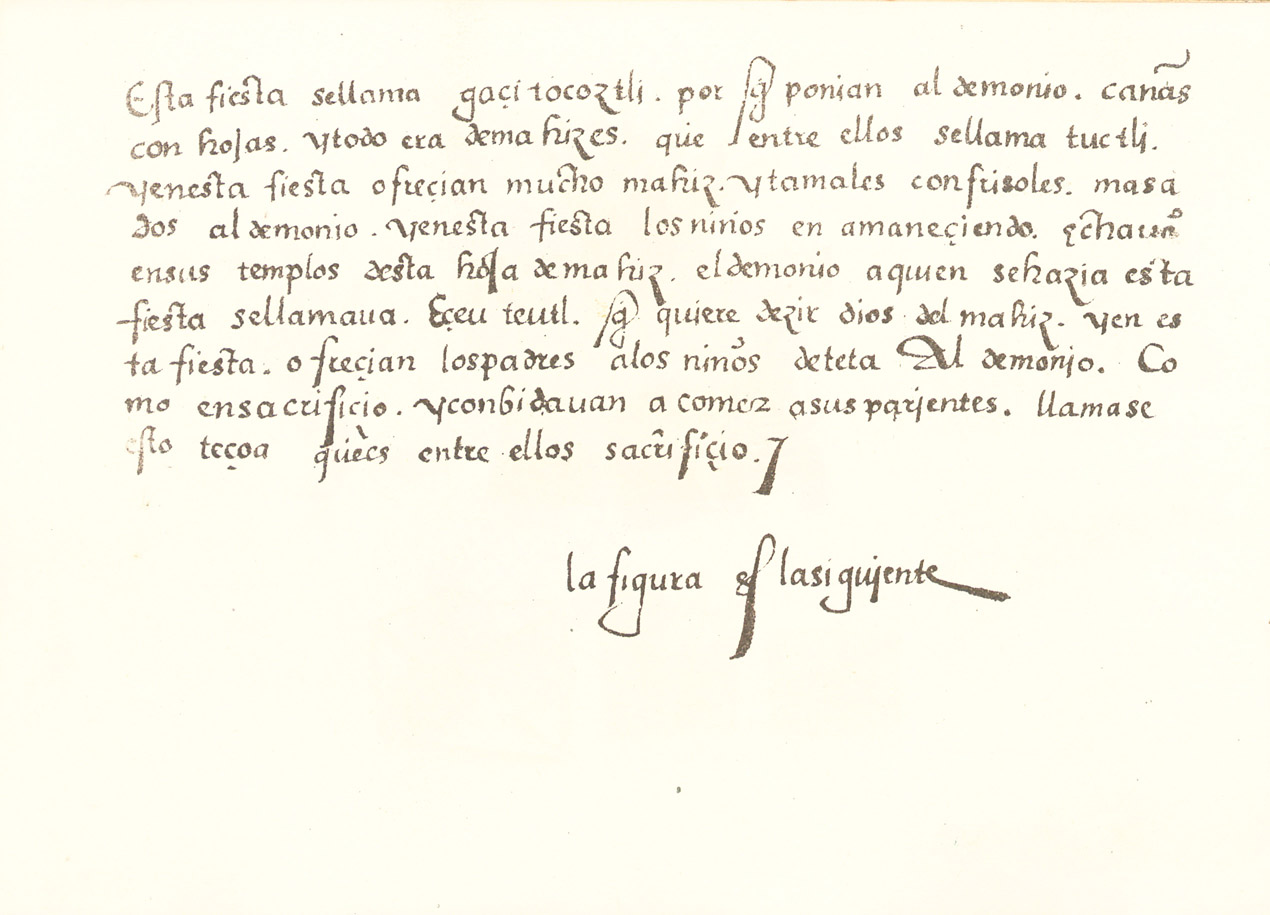 Esta fiesta sellama gaçitocoztli. por q̃ ponian al demonio. cañas
con hojas. ytodo era demahizes. que entre ellos sellama tuctli.
yenesta fiesta ofreçian mucho mahiz. ytamales confrisoles. masa
dos al demonio. yenesta fiesta losniños en amaneçiendo. echauã
ensus templos desta hoja demahiz. eldemonio aquien sehazia esta
fiesta sellamaua. Eçeu teutl. q̃ quiere dezir dios del mahiz. yen es
ta fiesta. ofreçian lospadres alos niños deteta Al demonio. Co
mo ensacrifiçio. yconbidauan a comer asusparientes. llamase
esto teçoa quees entre ellos sacrifiçio.
la figura es lasiguiente